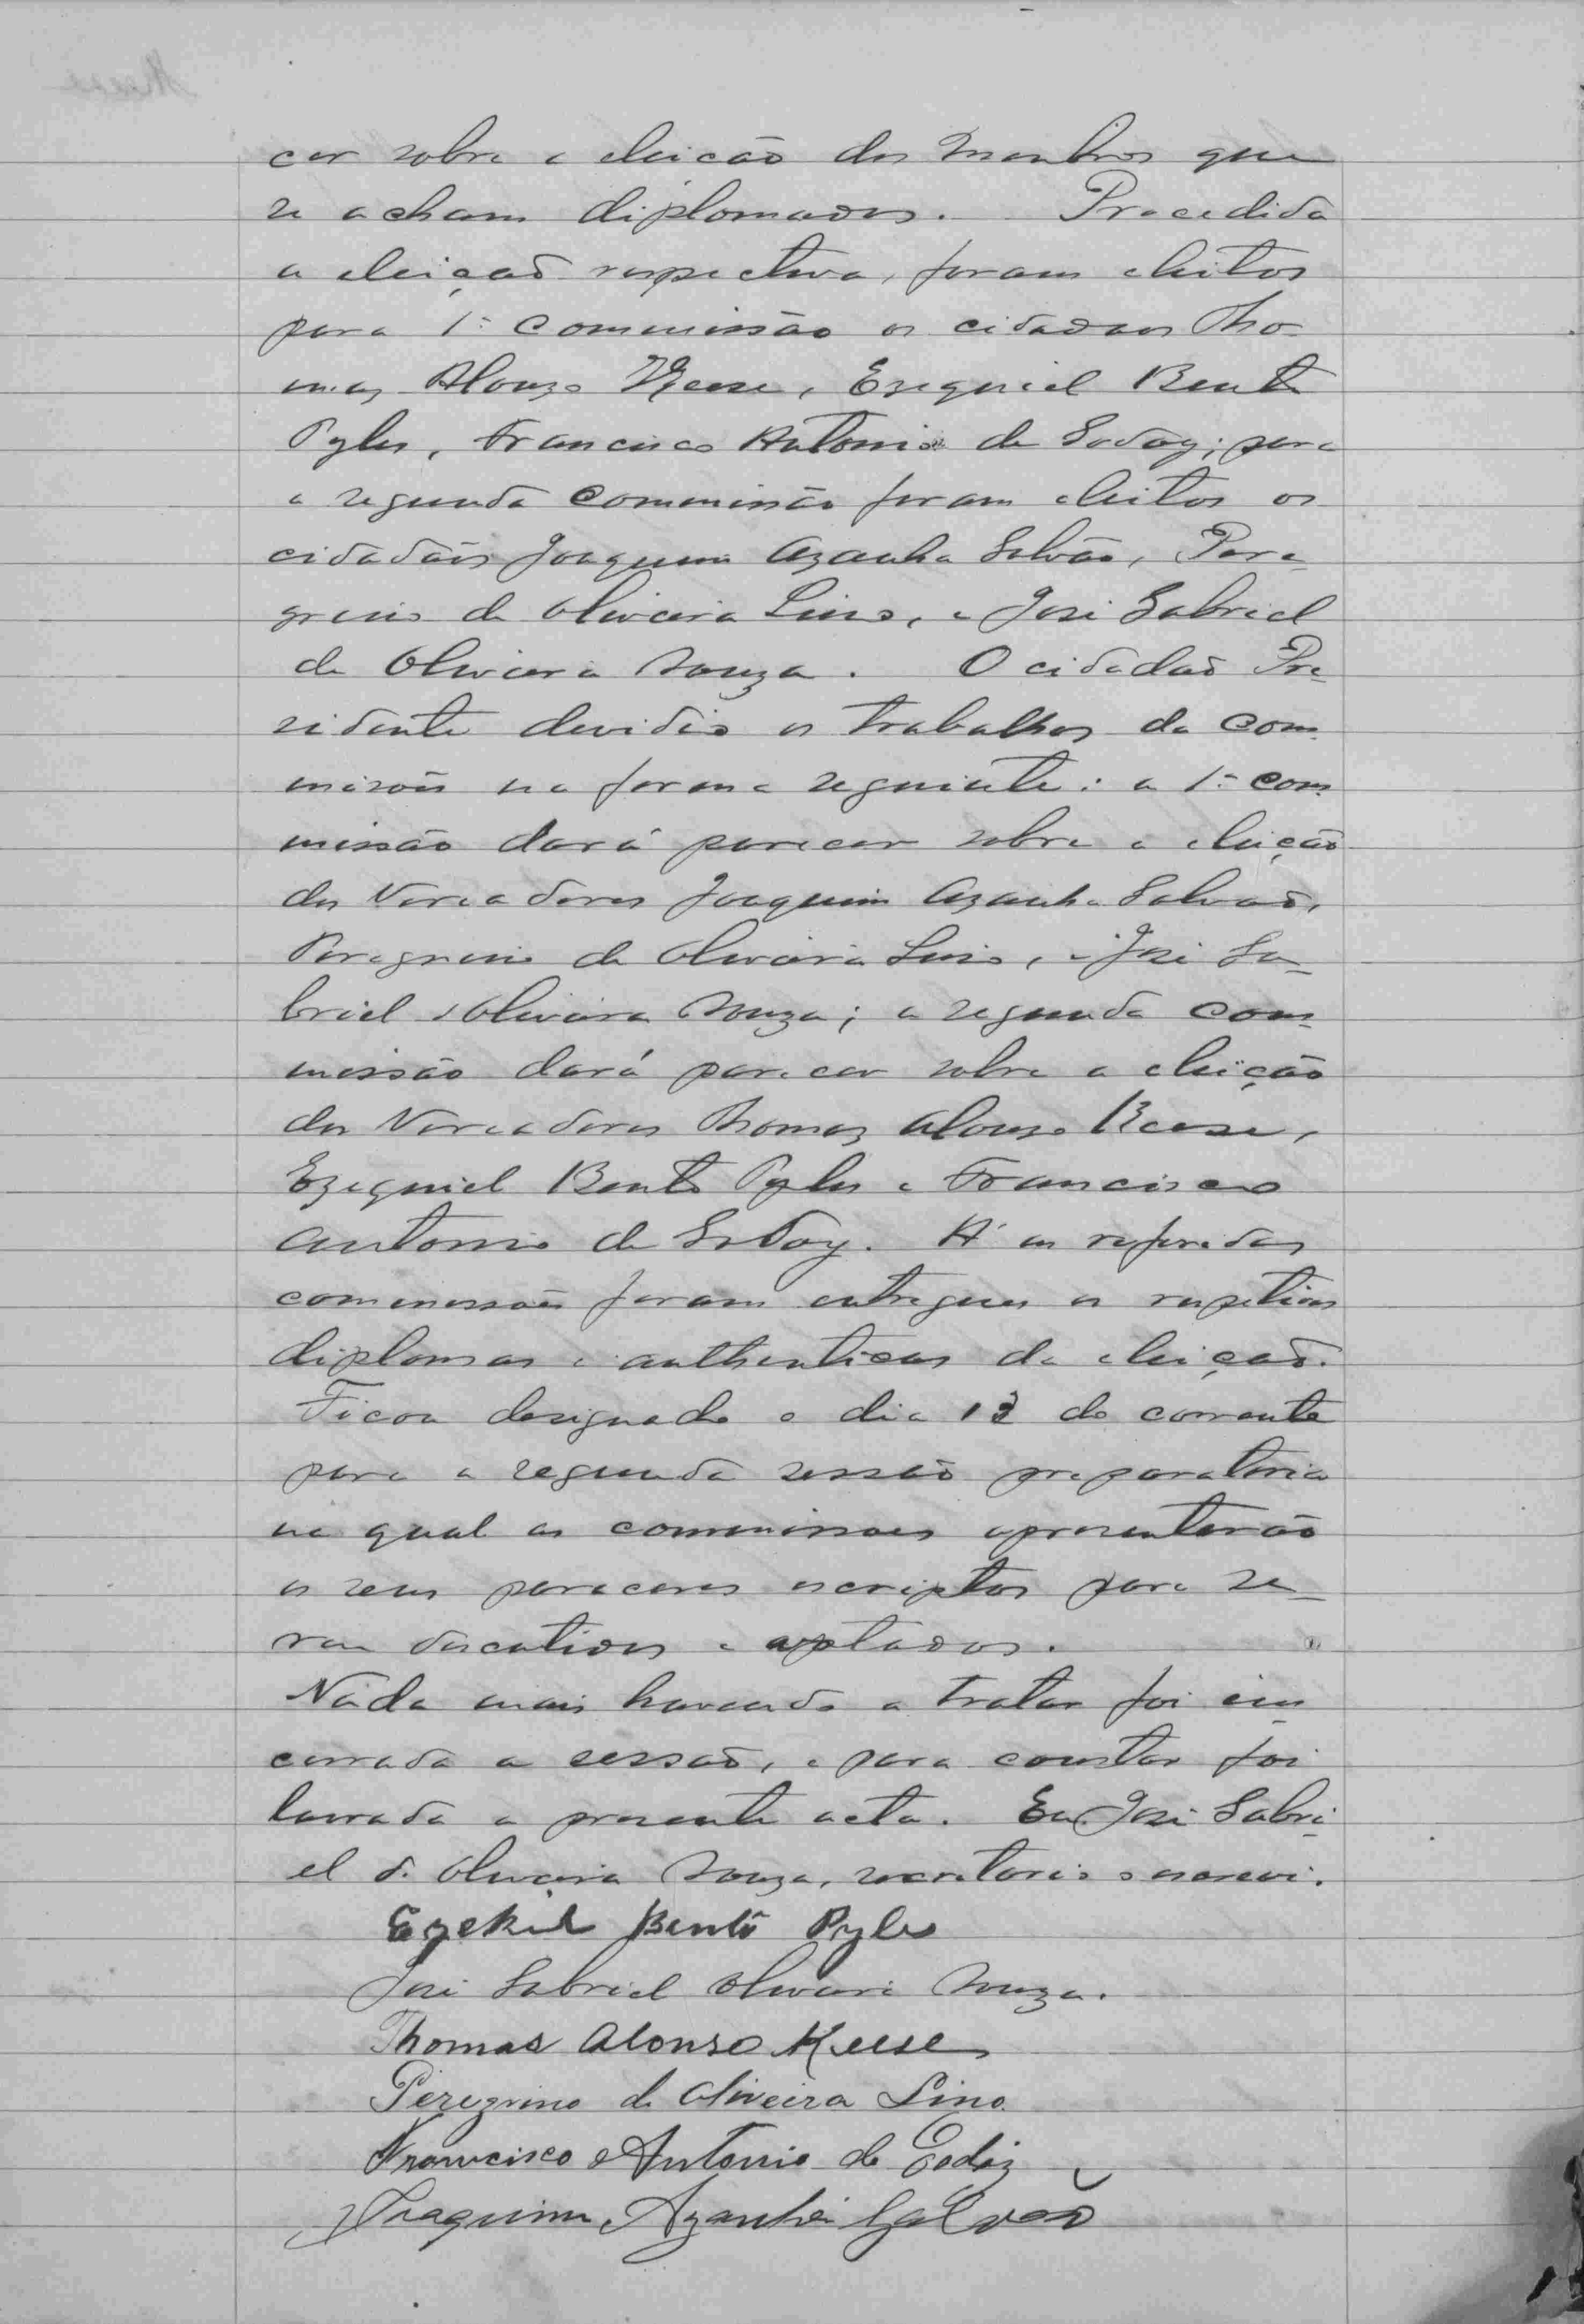 cer sobre a eleicão dos membros que
se acham diplomados. Procedida
a eleiçaõ respectiva, foram eleitos
para 1ª Commissão os cidadaos Tho-
mas Alonso Keese, Ezequiel Bento
Pyles, Francisco Antonio de Godoy; para
a segunda Commissão foram eleitos os
cidadãos Joaquim Azanha Galvão, Pere-
grino de Oliveira Lino, e José Gabriel
de Oliveira Souza. O cidadaõ Pre-
sidente devidio os trabalhos da Com-
missões na forma seguinte: a 1ª Com-
missão dará parecer sobre a eleição
dos Vereadores Joaquim Azanha Galvaõ,
Peregrino de Oliveira Lino, e José Ga-
briel Oliveira Souza; a segunda Com-
missão dará parecer sobre a eleição
dos Vereadores Thomaz Alonso Keese,
Ezequiel Bento Pyles e Francisco
Antonio de Godoy. A' as referidas
commissões foram entregues os respetivos
diplomas e authenticas da eleiçaõ.
Ficou designado o dia 13 do corrente
para a segunda sessaõ preparatoria
na qual as commissoes apresentarão
os seus pareceres escriptos para se-
rem discutidos e aptados.
Nada mais havendo a tratar foi en-
cerrada a sessaõ, e para constar foi
lavrada a presente acta. Eu José Gabri-
el d. Oliveira Souza, secretario o escrevi.
Ezekiel Bento Pyles
José Gabriel Oliveira Souza.
Thomas Alonso Keese
Peregrino de Oliveira Lino
Francisco Antonio de Godoy
Joaquim Azanha Galvaõ